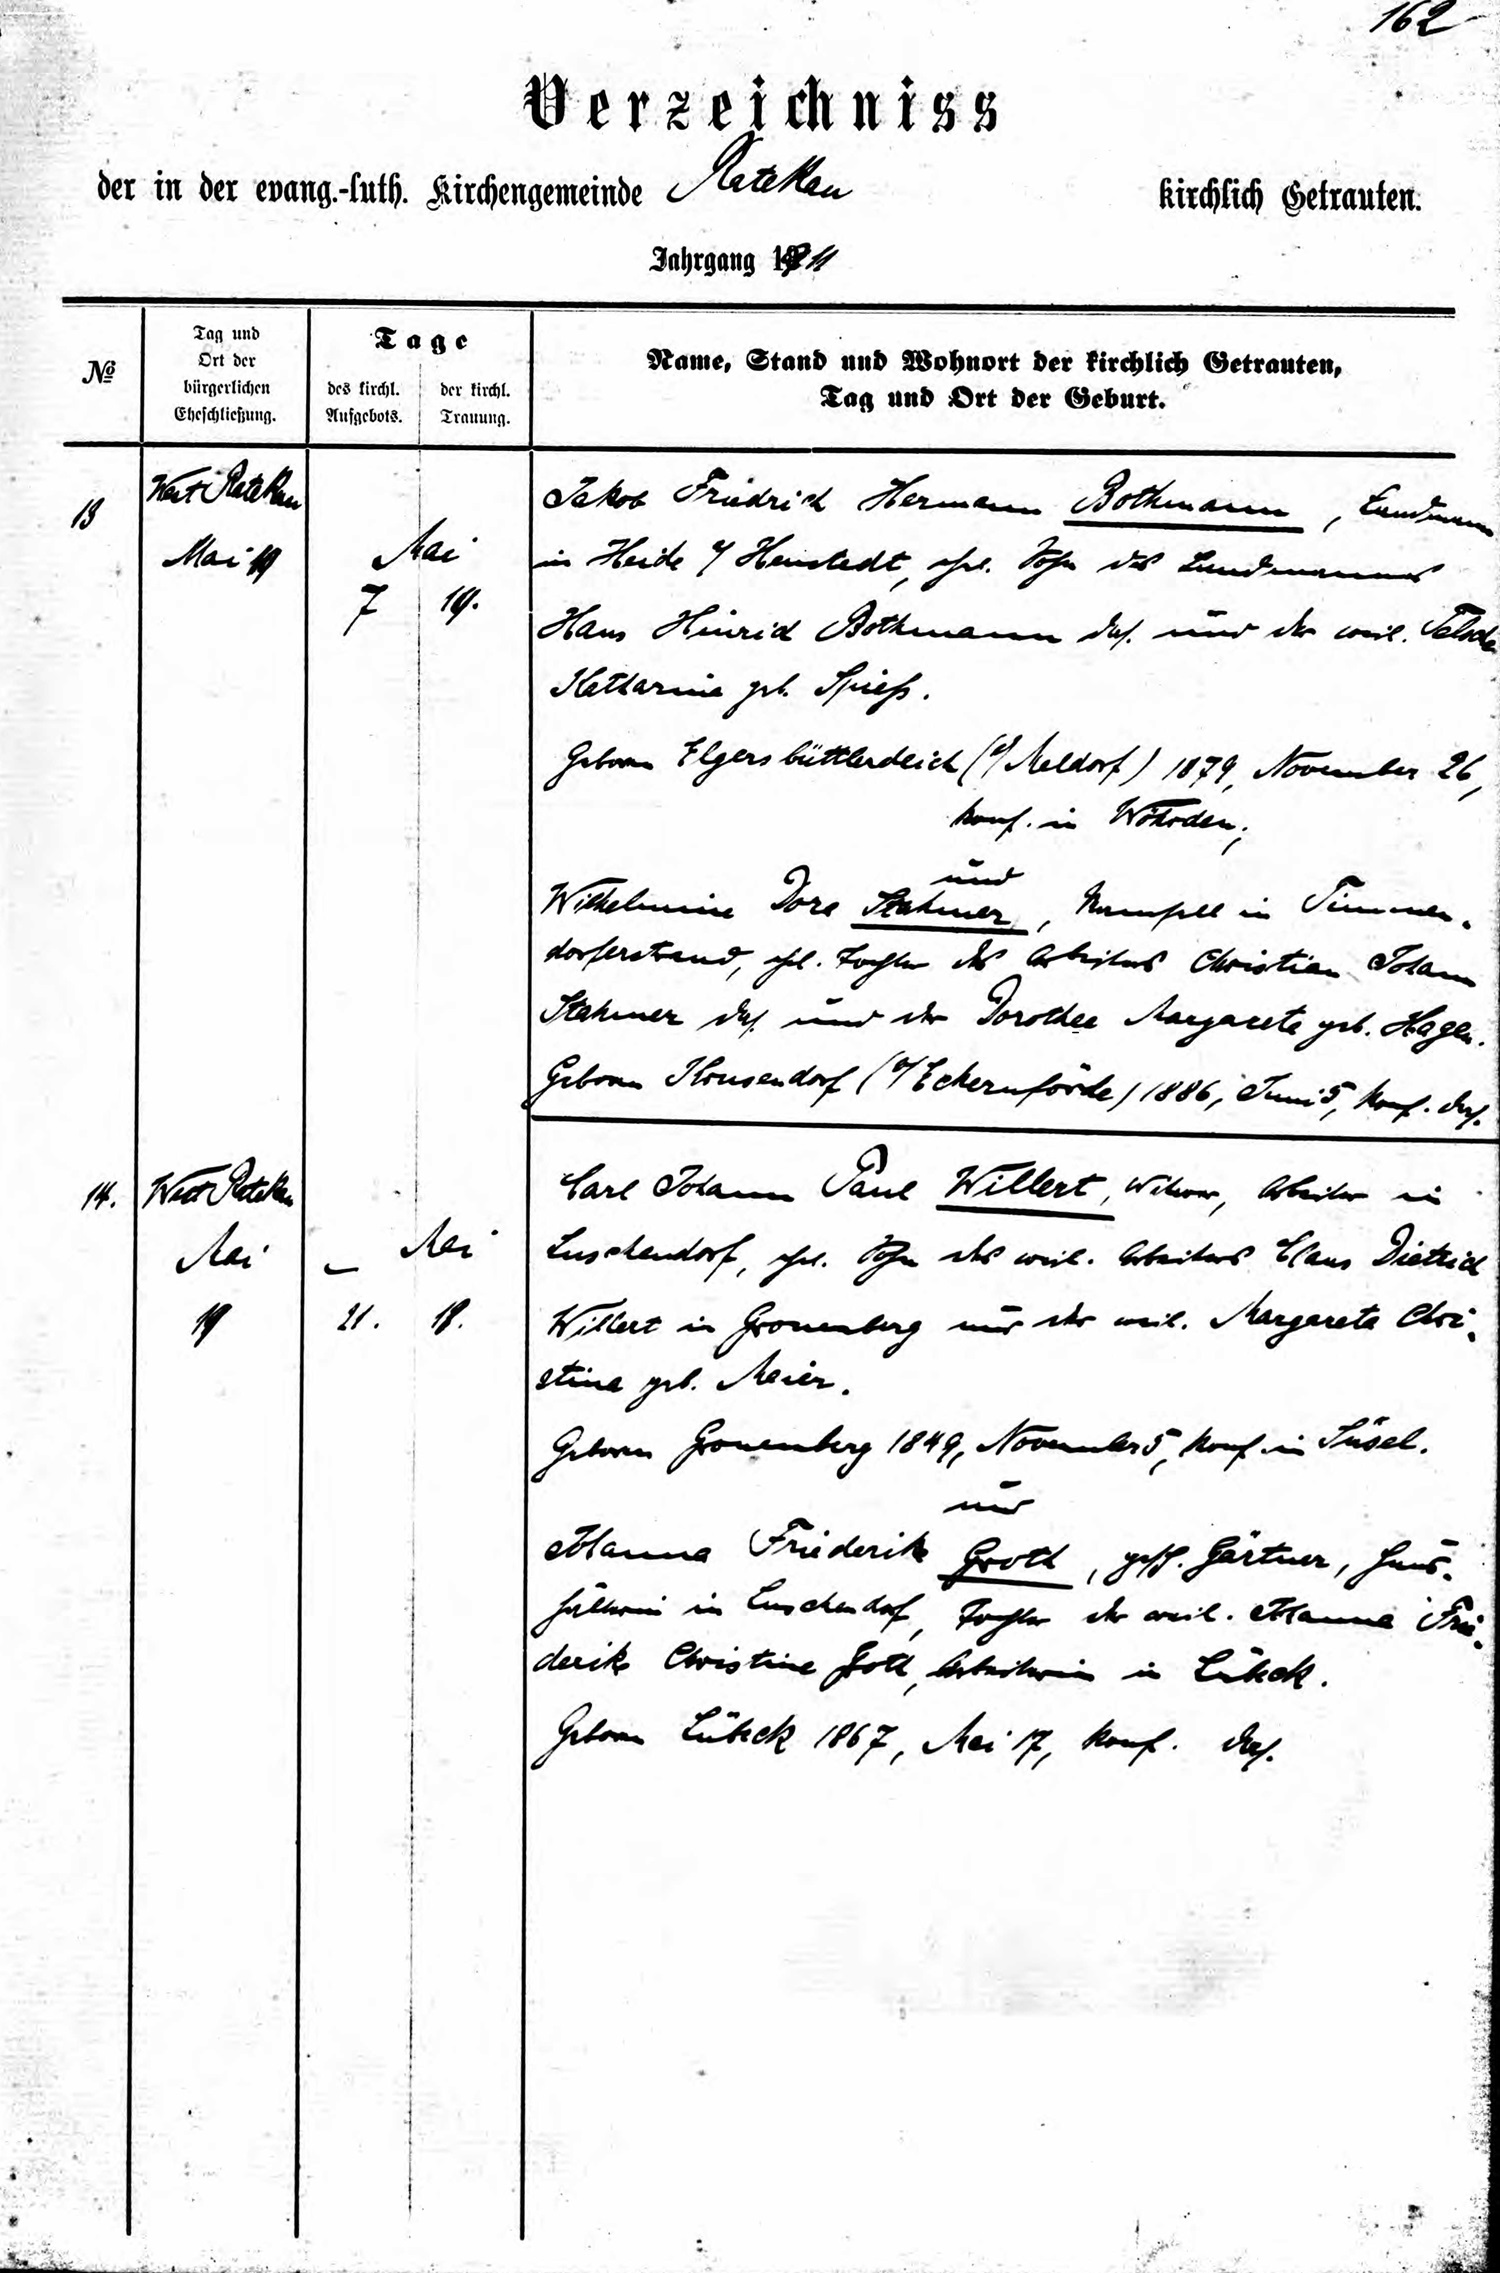 162
Verzeichniss
der in der evang.-luth. Kirchengemeinde Ratekau kirchlich Getrauten.
Jahrgang 1911
№
Tag und
Ort der
bürgerlichen
Eheschließung.
Tage
des kirchl.
Aufgebots.
der kirchl.
Trauung.
Name, Stand und Wohnort der kirchlich Getrauten,
Tag und Ort der Geburt.
13
West Ratekau
Mai 19
Mai
7 19.
Jakob Friedrich Hermann Bothmann, Landmann
in Heide b/ Henstedt, ehel. Sohn des Landmannes
Hans Hinrich Bothmann das. und der weil. Telsche
Katharine geb. Spieß.
Geboren Elgersbüttlerdeich (b/ Meldorf) 1879, November 26,
konf. in Wöhrden;
und
Wilhelmine Dora Stahmer, Mamsell in Timmen-
dorferstrand, ehel. Tochter des Arbeiters Christian Johann
Stahmer das. und der Dorothea Margareta geb. Hagen.
Geboren Krusendorf (b/ Eckernförde) 1886, Juni 5, konf. das.
14.
West Ratekau
Mai
19
– Mai
21. 19.
Carl Johann Paul Willert, Witwer, Arbeiter in
Luschendorf, ehel. Sohn des weil. Arbeiters Claus Dietrich
Willert in Gronenberg und der weil. Margareta Chri-
stina geb. Meier.
Geboren Gronenberg 1849, November 5, konf. in Süsel.
und
Johanna Friederike Groth, gesch. Gärtner, Haus-
hälterin in Luschendorf, Tochter der weil. Johanna Frie-
derike Christine Groth, Arbeiterin in Lübeck.
Geboren Lübeck 1867, Mai 17, konf. das.